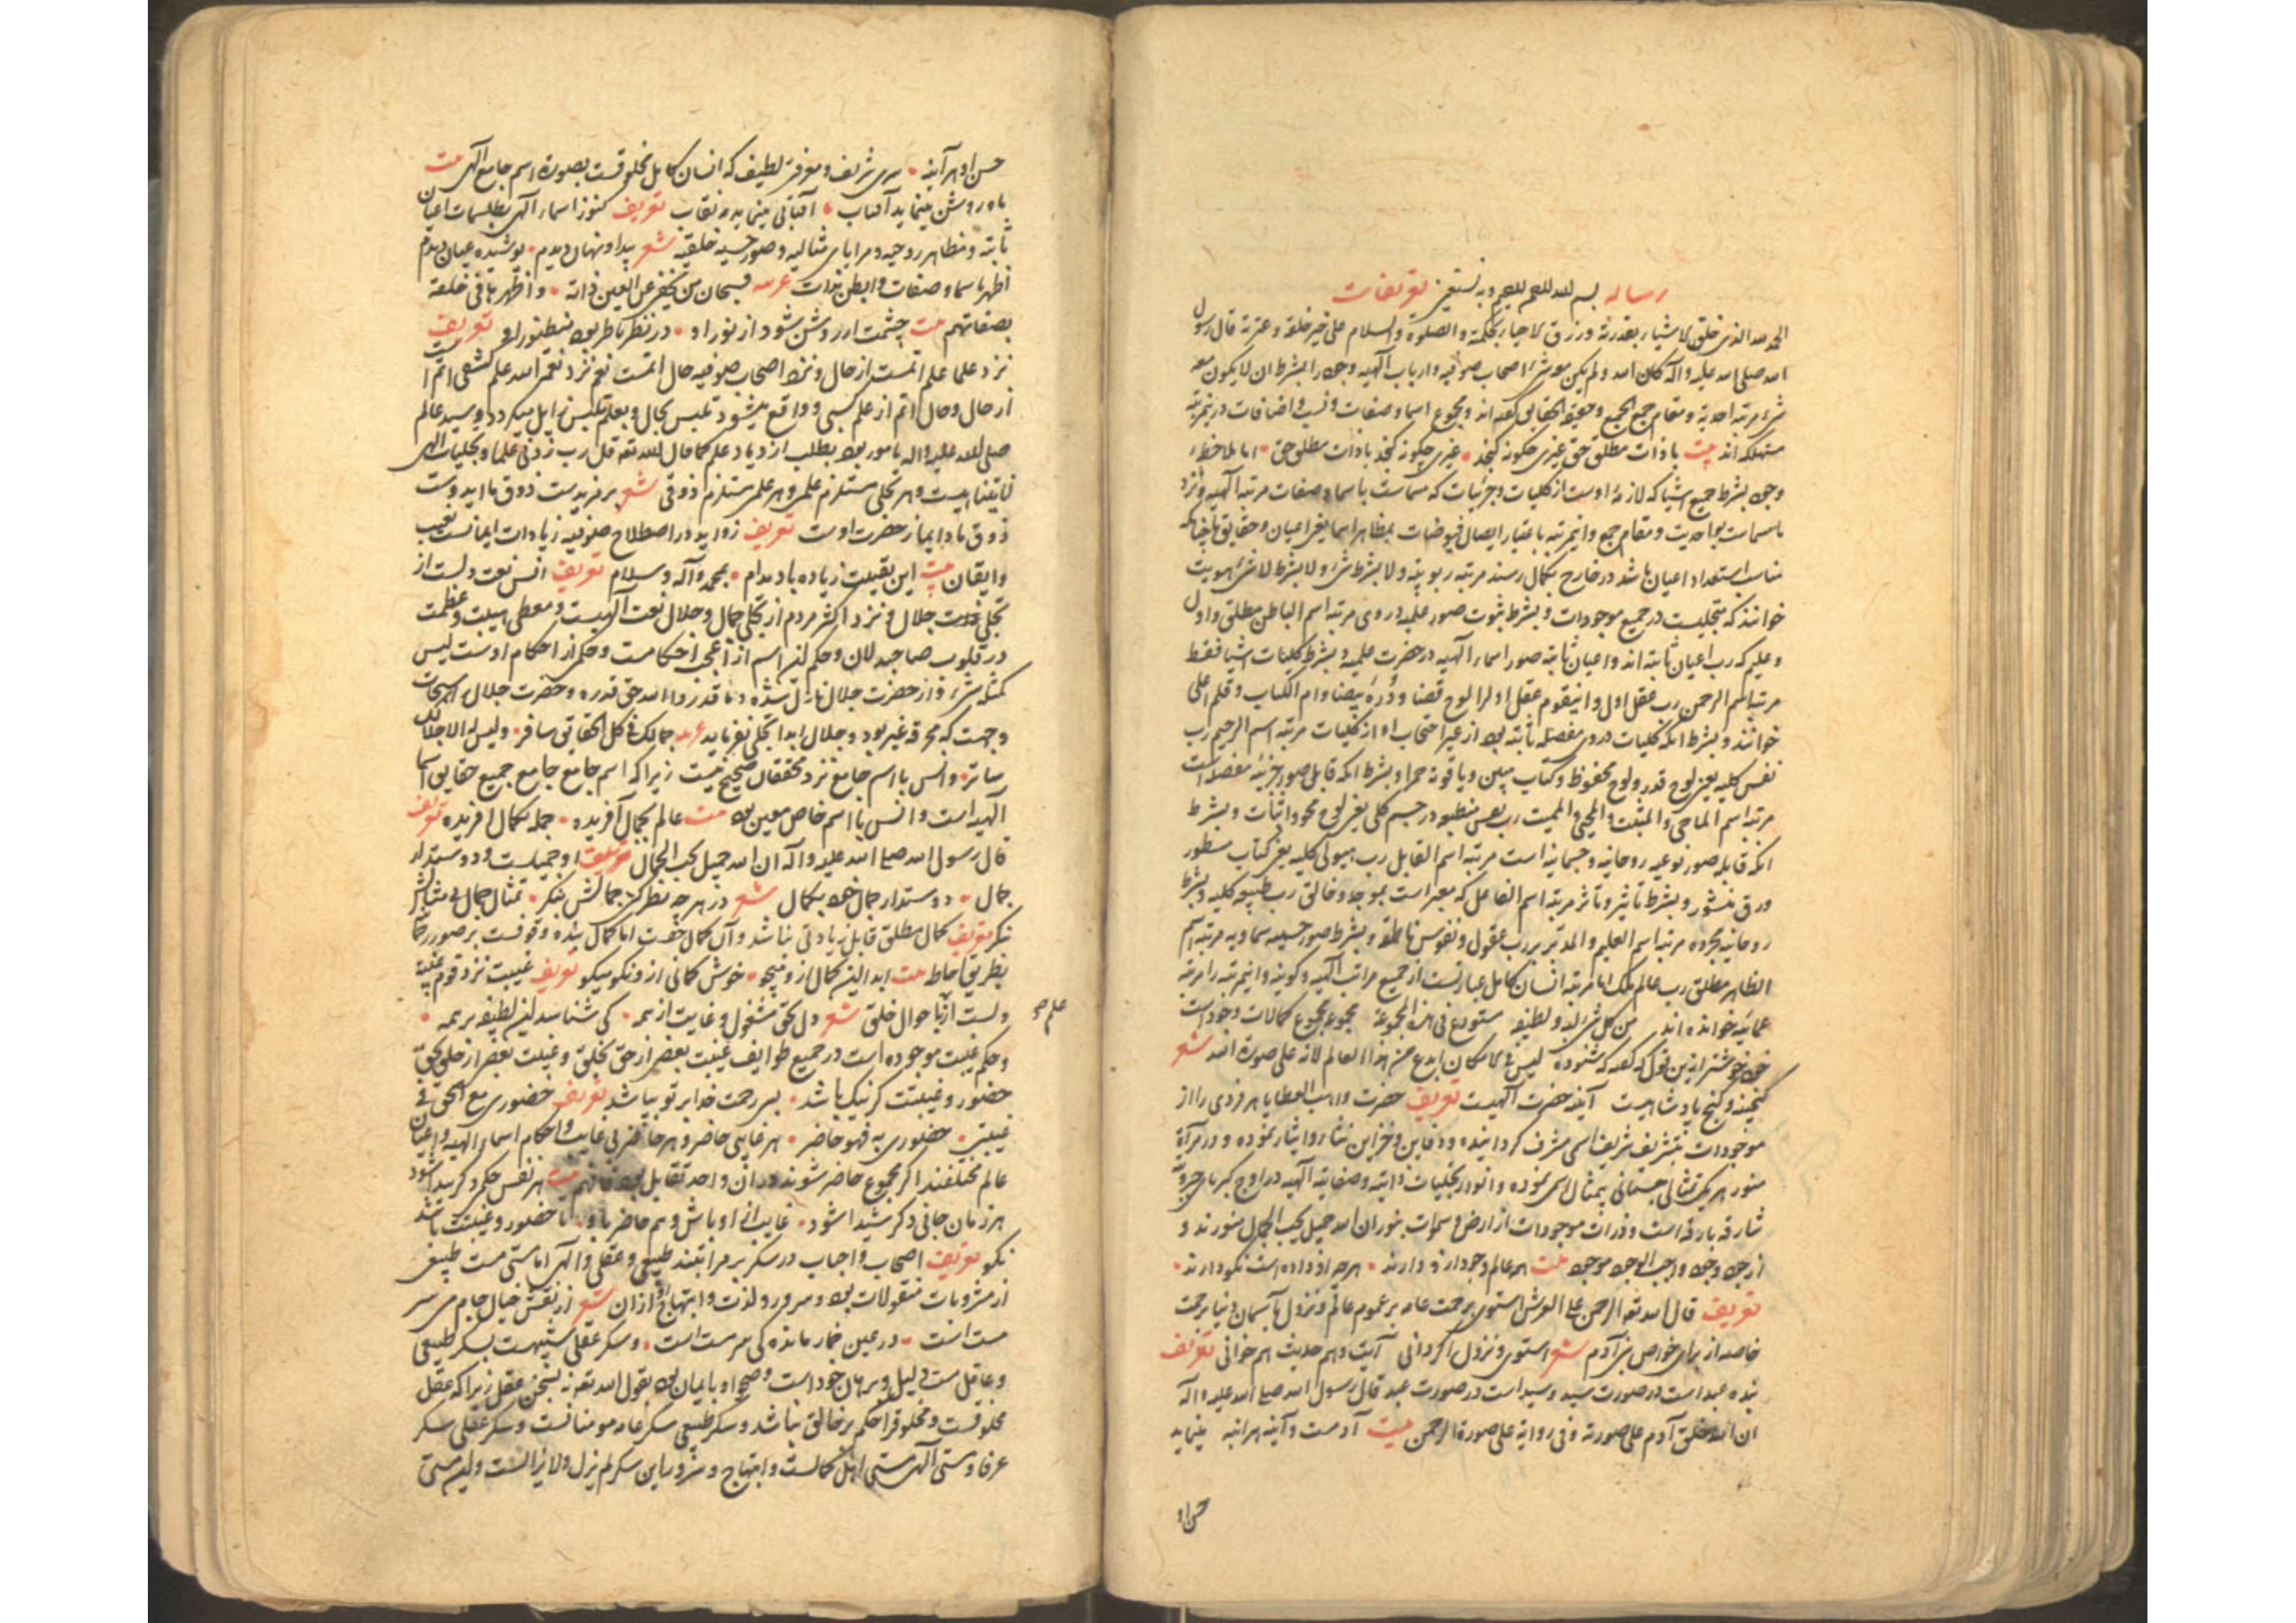 رساله بسم الله الرحمن الرحیم وبه نستعین تعریفات
الحمد لله الذی خلق الاشیاء بقدرته ورزق الاحیاء بحکمته والصلوة والسلام علی خیر خلقه وعترته قال رسول
الله صلی الله علیه وآله کان الله ولم یکن معه شیء اصحاب صوفیه وارباب آلهیه وجود را بشرط ان لا یکون معه
شیء مرتبه احدیة ومقام جمع الجمع وحقیقة الحقایق گفته اند ومجموع اسما وصفات ونسب واضافات درین مرتبه
مستهلک اند بیت با ذات مطلق حق غیری چگونه گنجد غیری چگونه گنجد با ذات مطلق حق اما بملاحظهٔ
وجود بشرط جمیع اشیا که لازمهٔ اوست از کلیات وجزئیات که مسماست باسما وصفات مرتبه آلهیه ونزد
ما مسماست بواحدیت ومقام جمع واین مرتبه باعتبار ایصال فیوضات بمظاهر اسما یعنی اعیان وحقایق چنانکه
مناسب استعداد اعیان باشد در خارج بکمال رسند مرتبه ربوبیة ولا بشرط شیء ولا بشرط لا شیء هویت
خوانند که متجلیست در جمیع موجودات وبشرط ثبوت صور علمیه در وی مرتبه اسم الباطن مطلق واول
وعلیم که رب اعیان ثابته اند واعیان ثابته صور اسماء آلهیه در حضرت علمیه وبشرط کلیات اشیا فقط
مرتبه اسم الرحمن رب عقل اول واین قوم عقل اول را لوح قضا ودرّهٔ بیضا وام الکتاب وقلم اعلی
خوانند وبشرط آنکه کلیات در وی مفصله ثابته بود از غیر احتجاب او از کلیات مرتبه اسم الرحیم رب
نفس کلیه یعنی لوح قدر ولوح محفوظ وکتاب مبین ویاقوتهٔ حمرا وبشرط آنکه قابل صور جزئیه مفصله است
مرتبه اسم الماحی والمثبت والمحیی والممیت رب نفس منطبعه در جسم کلی یعنی لوح محو واثبات وبشرط
آنکه قابله صور نوعیه روحانیه وجسمانیه است مرتبه اسم القابل رب هیولی کلیه یعنی کتاب مسطور
ورق منشور وبشرط تأثیر وتأثر مرتبه اسم الفاعل که معبر است بموجد وخالق رب طبیعه کلیه وبشرط
روحانیه مجرده مرتبه اسم العلیم والمدبر رب عقول ونفوس ناطقه وبشرط صور حسیه سماویه مرتبه اسم
الظاهر مطلق رب عالم ملک اما مرتبه انسان کامل عبارتست از جمیع مراتب آلهیه وکونیه واین مرتبه را مرتبه
عمائیه خوانده اند من کل شیء لبه ولطیفه مستودع فی هذه المجموعة مجموع مجموع کمالات وجود است
خود خوشتر ازین قول که گفت که شنوده لیس فی الامکان ابدع من هذا العالم لانه علی صورة الله شعر
گنجینه وگنج پادشاهیست آینه حضرت آلهیست تعریف حضرت واهب العطایا هر فردی را از
موجودات بتشریف شریف اسمی مشرف گردانیده ودفاین وخزاین نثار وایثار نموده ودر مرآة
منور هر یک تمثالی جسمانی بمثال اسمی نموده وانوار تجلیات ذاتیه وصفاتیه آلهیه در اوج کبریای جبروتیه
شارقه بارقه است وذرات موجودات از ارض وسموات بنور ان الله جمیل یحب الجمال منورند و
از جود وجود واجب الوجود موجود بیت همه عالم وجود ازو دارند هرچه او داده است نکو دارند
تعریف قال الله تعه الرحمن علی العرش استوی برحمت عامه بر عموم عالم ونزول بآسمان دنیا برحمت
خاصه از برای خواص بنی آدم شعر استوی ونزول اگر دانی آیت وهم حدیث هم خوانی تعریف
بنده عبد است در صورت سید وسید است در صورت عبد قال رسول الله صلی الله علیه وآله
ان الله خلق آدم علی صورته وفی روایة علی صورة الرحمن بیت آدمست وآینه هر آینه مینماید
حسن او
حسن او هر آینه سری شریف ومعرفتی لطیف که انسان کامل مخلوقست بصورة اسم جامع آلهی بیت
ماه روشن مینماید آفتاب آفتابی مینماید مه نقاب تعریف کنوز اسماء آلهی بطلسمات اعیان
ثابته ومظاهر روحیه ومرایای مثالیه وصور حسیه خلقیه شعر پیدا ونهان دیدم پوشیده عیان دیدم
اظهر باسما وصفات وابطن بذات عربیه فسبحان من تخفی عن العین ذاته واظهر باقی خلقه
بصفاتهم بیت چشمت ار روشن شود از نور او در نظر ناظر بود منظور او تعریف
نزد علما علم اتمست از حال ونزد اصحاب صوفیه حال اتمست نعم نزد نعمة الله علم کشفی اتم است
از حال وحال اتم از علم کسبی وواقع میشود تلبس بحال وبعلم تلبیس زایل میگردد وسید عالم
صلی الله علیه وآله مأمور بود بطلب ازدیاد علم کما قال الله تعه قل رب زدنی علما وتجلیات الهی
لا یتناهیست وهر تجلی مستلزم علمی وهر علمی مستلزم ذوقی شعر بر مزیدست ذوق ما ای دوست
ذوق ما دایما ز حضرت اوست تعریف زواید در اصطلاح صوفیه زیادات ایمانست بغیب
وایقان بیت این یقینت زیاده باد مدام بمحمد وآله وسلام تعریف انس نعت دلست از
تجلی جلال ونزد اکثر مردم از تجلی جمال وجلال نعت آلهیست ومعطی هیبت وعظمت
در قلوب صاحبدلان وحکم این اسم از اعجب احکامست وحکم از احکام اوست لیس
کمثله شیء واز حضرت جلال نازل شده وما قدروا الله حق قدره وحضرت جلال را سبحات
وجهیست که محرقه غیر بود وجلال ابدا تجلی نفرماید عربیه جمالک فی کل الحقایق سافر ولیس له الا جلالک
ساتر وانس با اسم جامع نزد محققان صحیح نیست زیرا که اسم جامع جامع جمیع حقایق اسما
آلهیه است وانس با اسم خاص معین بود بیت عالم بجمال آفریده جمله بکمال آفریده تعریف
قال رسول الله صلی الله علیه وآله ان الله جمیل یحب الجمال تعریف او جمیلست ودوستدار
جمال دوستدار جمال خود بکمال شعر در هر چه نظر کنی جمالش بنگر تمثال جمال بی مثالش
بنگر تعریف کمال مطلق قابل زیادتی نباشد وآن کمال حقست اما کمال بنده وقوفست بر صور
بطریق احاطه بیت ابدا این کمال ازو میجو خوش کمالی ازو نکو میگو تعریف غیبت نزد قوم غیبة
دلست از احوال خلق شعر دل بحق مشغول وغایب از همه کی شناسد این لطیفه بر همه
علم صح
وحکم غیبت موجوده است در جمیع طوایف غیبت بعضی از حق بخلق وغیبت بعضی از خلق بحق
حضور وغیبتت گر نیک باشد بسی رحمت خدا بر تو بپاشد تعریف حضوری مع الحق فی
غیبتی حضوری به فهو حاضر هر غایبی حاضر وهر حاضری غایب واحکام اسماء الهیه واعیان
عالم مختلفند اگر مجموع حاضر شوند در آن واحد تقابل بود فافهم بیت هر نفس حکم دگر پیدا شود
هر زمان جانی دگر شیدا شود غایب از او باش وهم حاضر باو تا حضور وغیبتت باشد
نکو تعریف اصحاب واحباب در سکر بر مراتبند طبیعی وعقلی وآلهی اما مستی مست طبیعی
از مشروبات منقولات بود وسرور ولذت وابتهاج او از آن شعر از نقش خیال جام می سر
مست است در عین خمار مانده کی سرمست است وسکر عقلی شبیهست بسکر طبیعی
وعاقل مست دلیل وبرهان خود است وصحو او بایمان بود بقول الله تعه نه بسخن عقل زیرا که عقل
مخلوقست ومخلوق را حکم بر خالق نباشد وسکر طبیعی سکر عامه مومنانست وسکر عقلی سکر
عرفا ومستی آلهی مستی اهل کمالست وابتهاج وسرور این سکر لم یزل ولا یزالست واین مستی